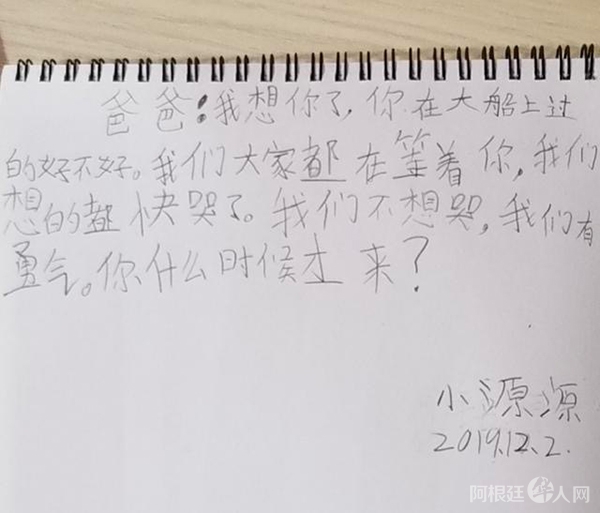 爸爸!我想你了,你在大船上过
的好不好。我们大家都在等着你,我们
想的都快哭了。我们不想哭,我们有
勇气。你什么时候才来?
小源源
2019.12.2.
阿根廷华人网